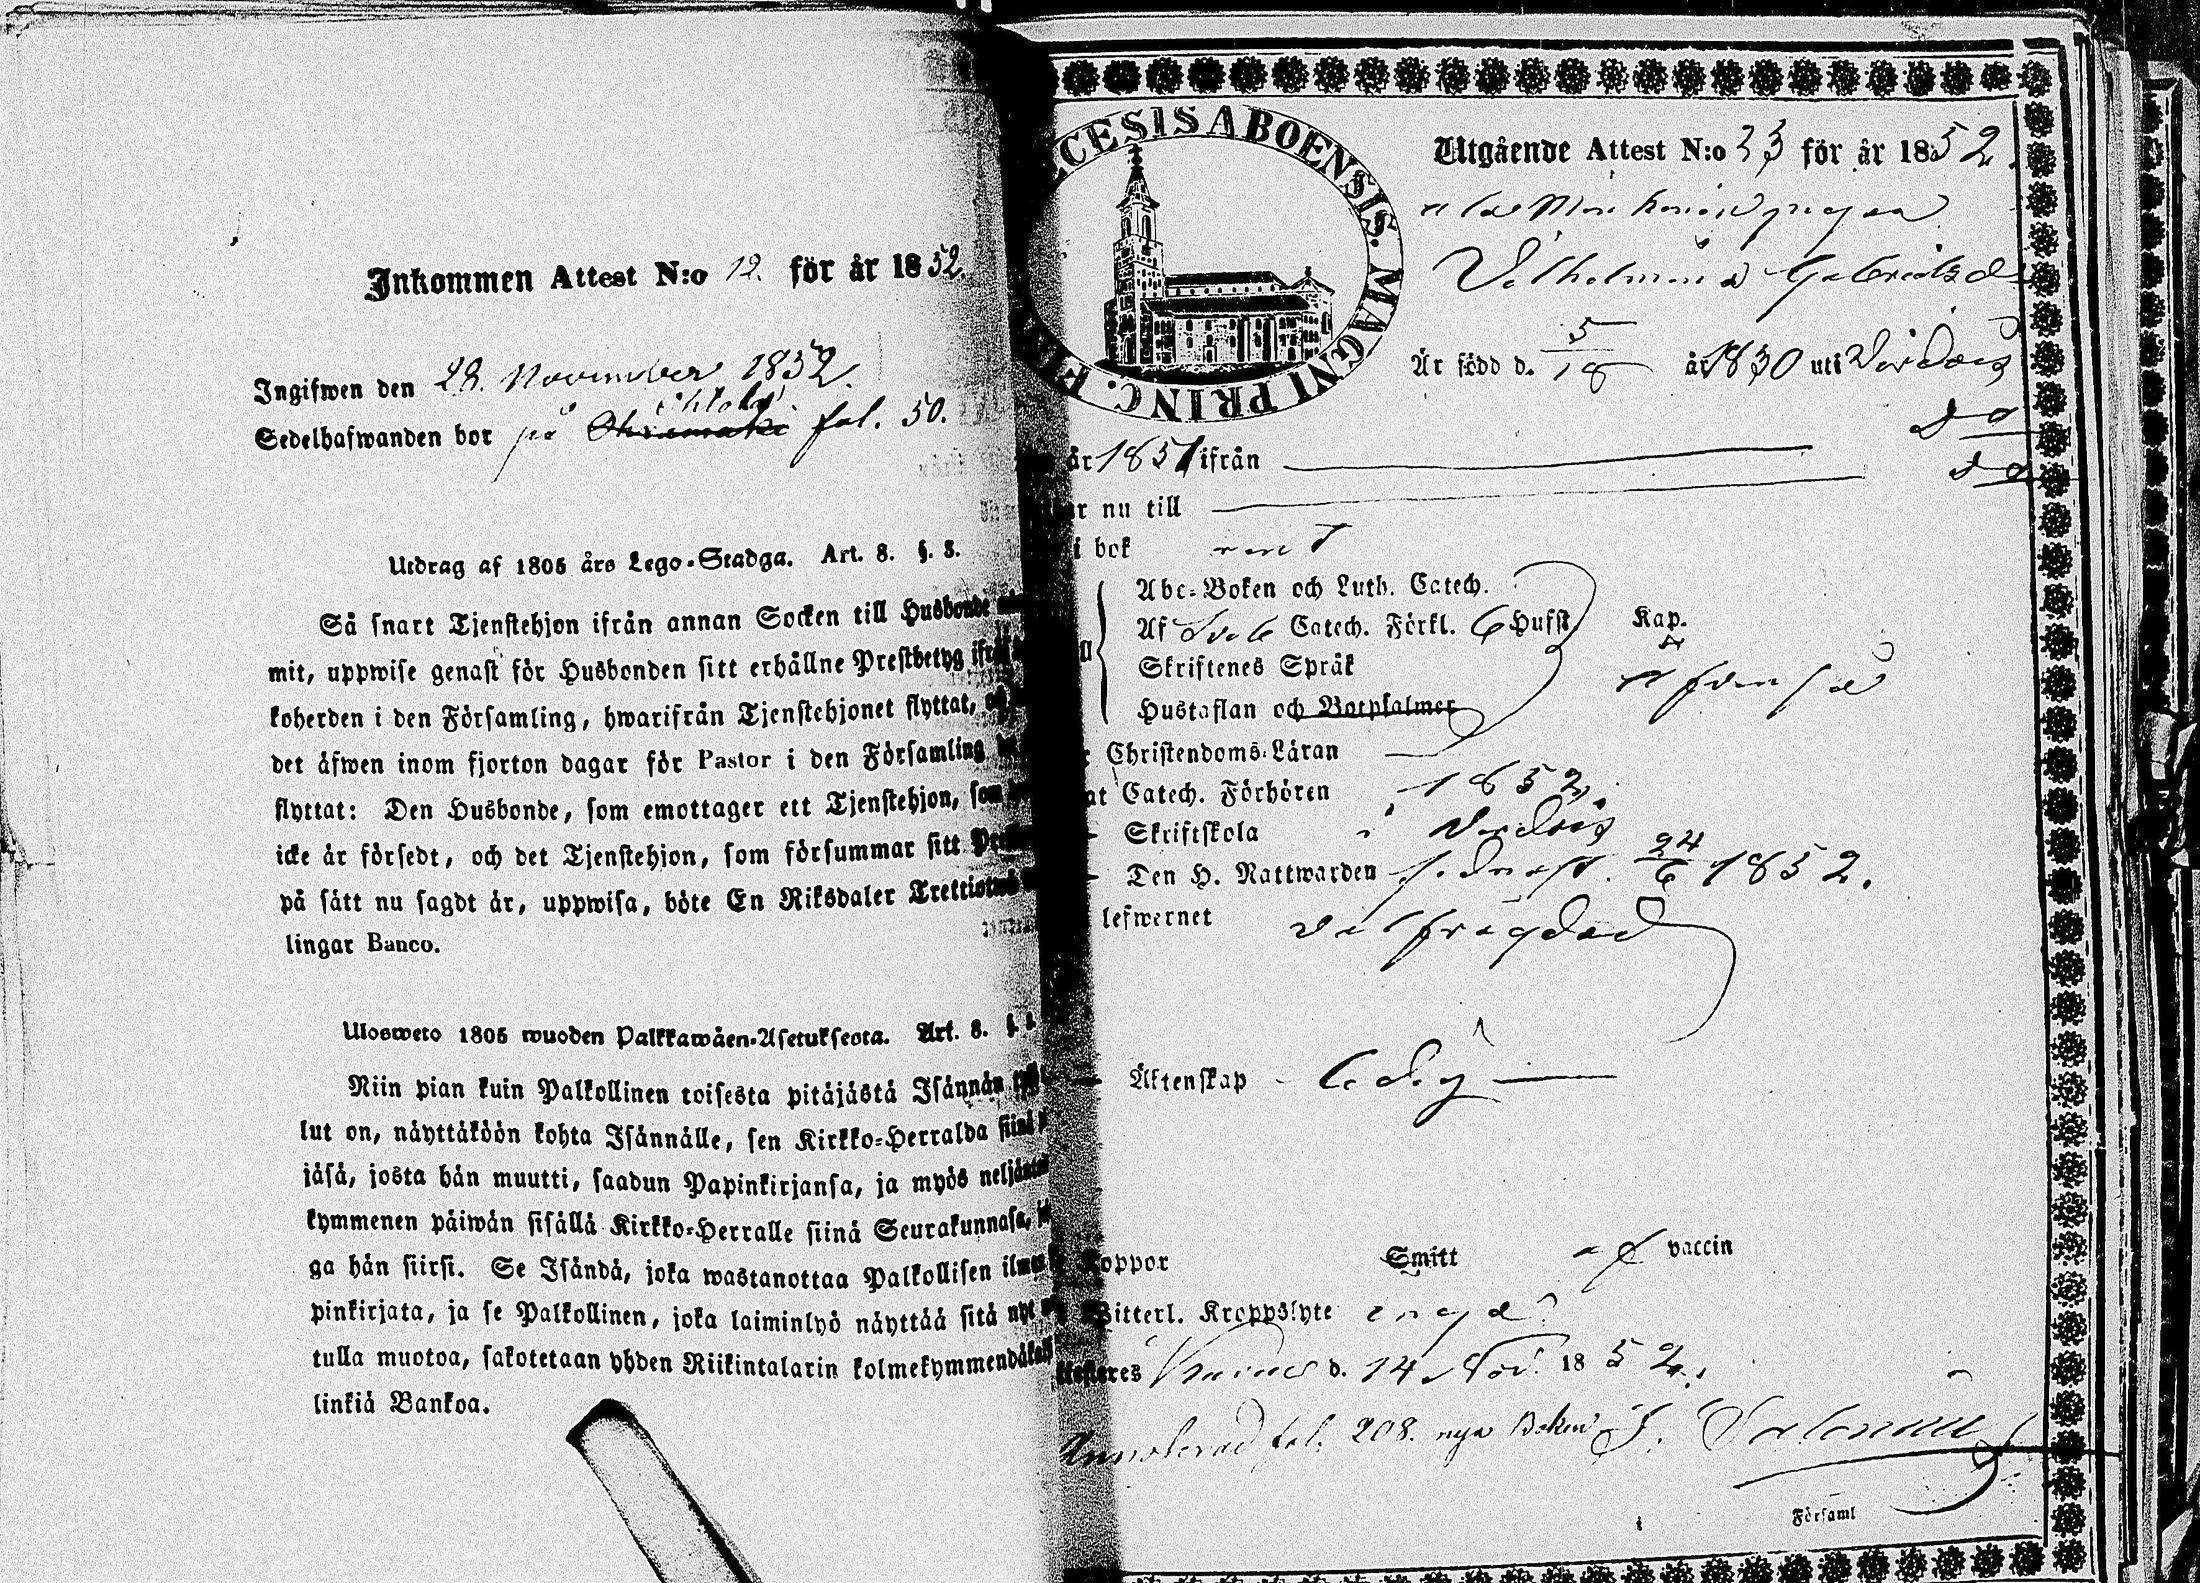 Inkommen Attest N:o 12. för år 1852.
Ingifwen den 28. November 1852.
Sedelhafwanden bor på fol. 50.
Utdrag af 1805 års Lego-Stadga. Art. 8. §. 3.
Så snart Tjenstehjon ifrån annan Socken till Husbonde
mit, uppwise genast för Husbonden sitt erhållne Prestbetyg
koherden i den Församling, hwarifrån Tjenstehjonet flyttat,
det äfwen inom fjorton dagar för Pastor i den Församling
flyttat: Den Husbonde, som emottager ett Tjenstehjon, som
icke är försedt, och det Tjenstehjon, som försummar sitt
på sätt nu sagdt är, uppwisa, böte En Riksdaler
lingar Banco.
Ulosweto 1805 wuoden Palkkawäen-Asetuksesta. Art. 8. §.
Niin pian kuin Palkollinen toisesta pitäjästä Isännän
lut on, näyttäköön kohta Isännälle, sen Kirkko-Herralda
jäsä, josta hän muutti, saadun Papinkirjansa, ja myös
kymmenen päiwän sisällä Kirkko-Herralle siinä Seurakunnasa,
ga hän siirsi. Se Isändä, joka wastanottaa Palkollisen
pinkirjata, ja se Palkollinen, joka laiminlyö näyttää sitä
tulla muotoa, sakotetaan yhden Riikintalarin
linkiä Bankoa.
CESIS ABOENSIS. MAGNI PRINC.
Utgående Attest N:o 23 för år 1852.
Wilhelmina Gabrielsd
Är född d. 5/18 år 1830 uti
år 1851 ifrån
nu till
i bok rent
Abc-Boken och Luth. Catech.
Af Sveb Catech. Förkl. 6 Hufst. Kap.
Skriftenes Språk
Hustaflan och Botpsalmer
Christendoms-Läran
Catech. Förhören 1852,
Skriftskola i
Den H. Nattwarden 24/6 1852.
lefwernet välfrägdad
Äktenskap ledig
Koppor Smitt af vaccin
Witterl. Kroppslyte inga
d. 14 Nov. 1852.
Annoterad fol. 208. nya Boken
Församl